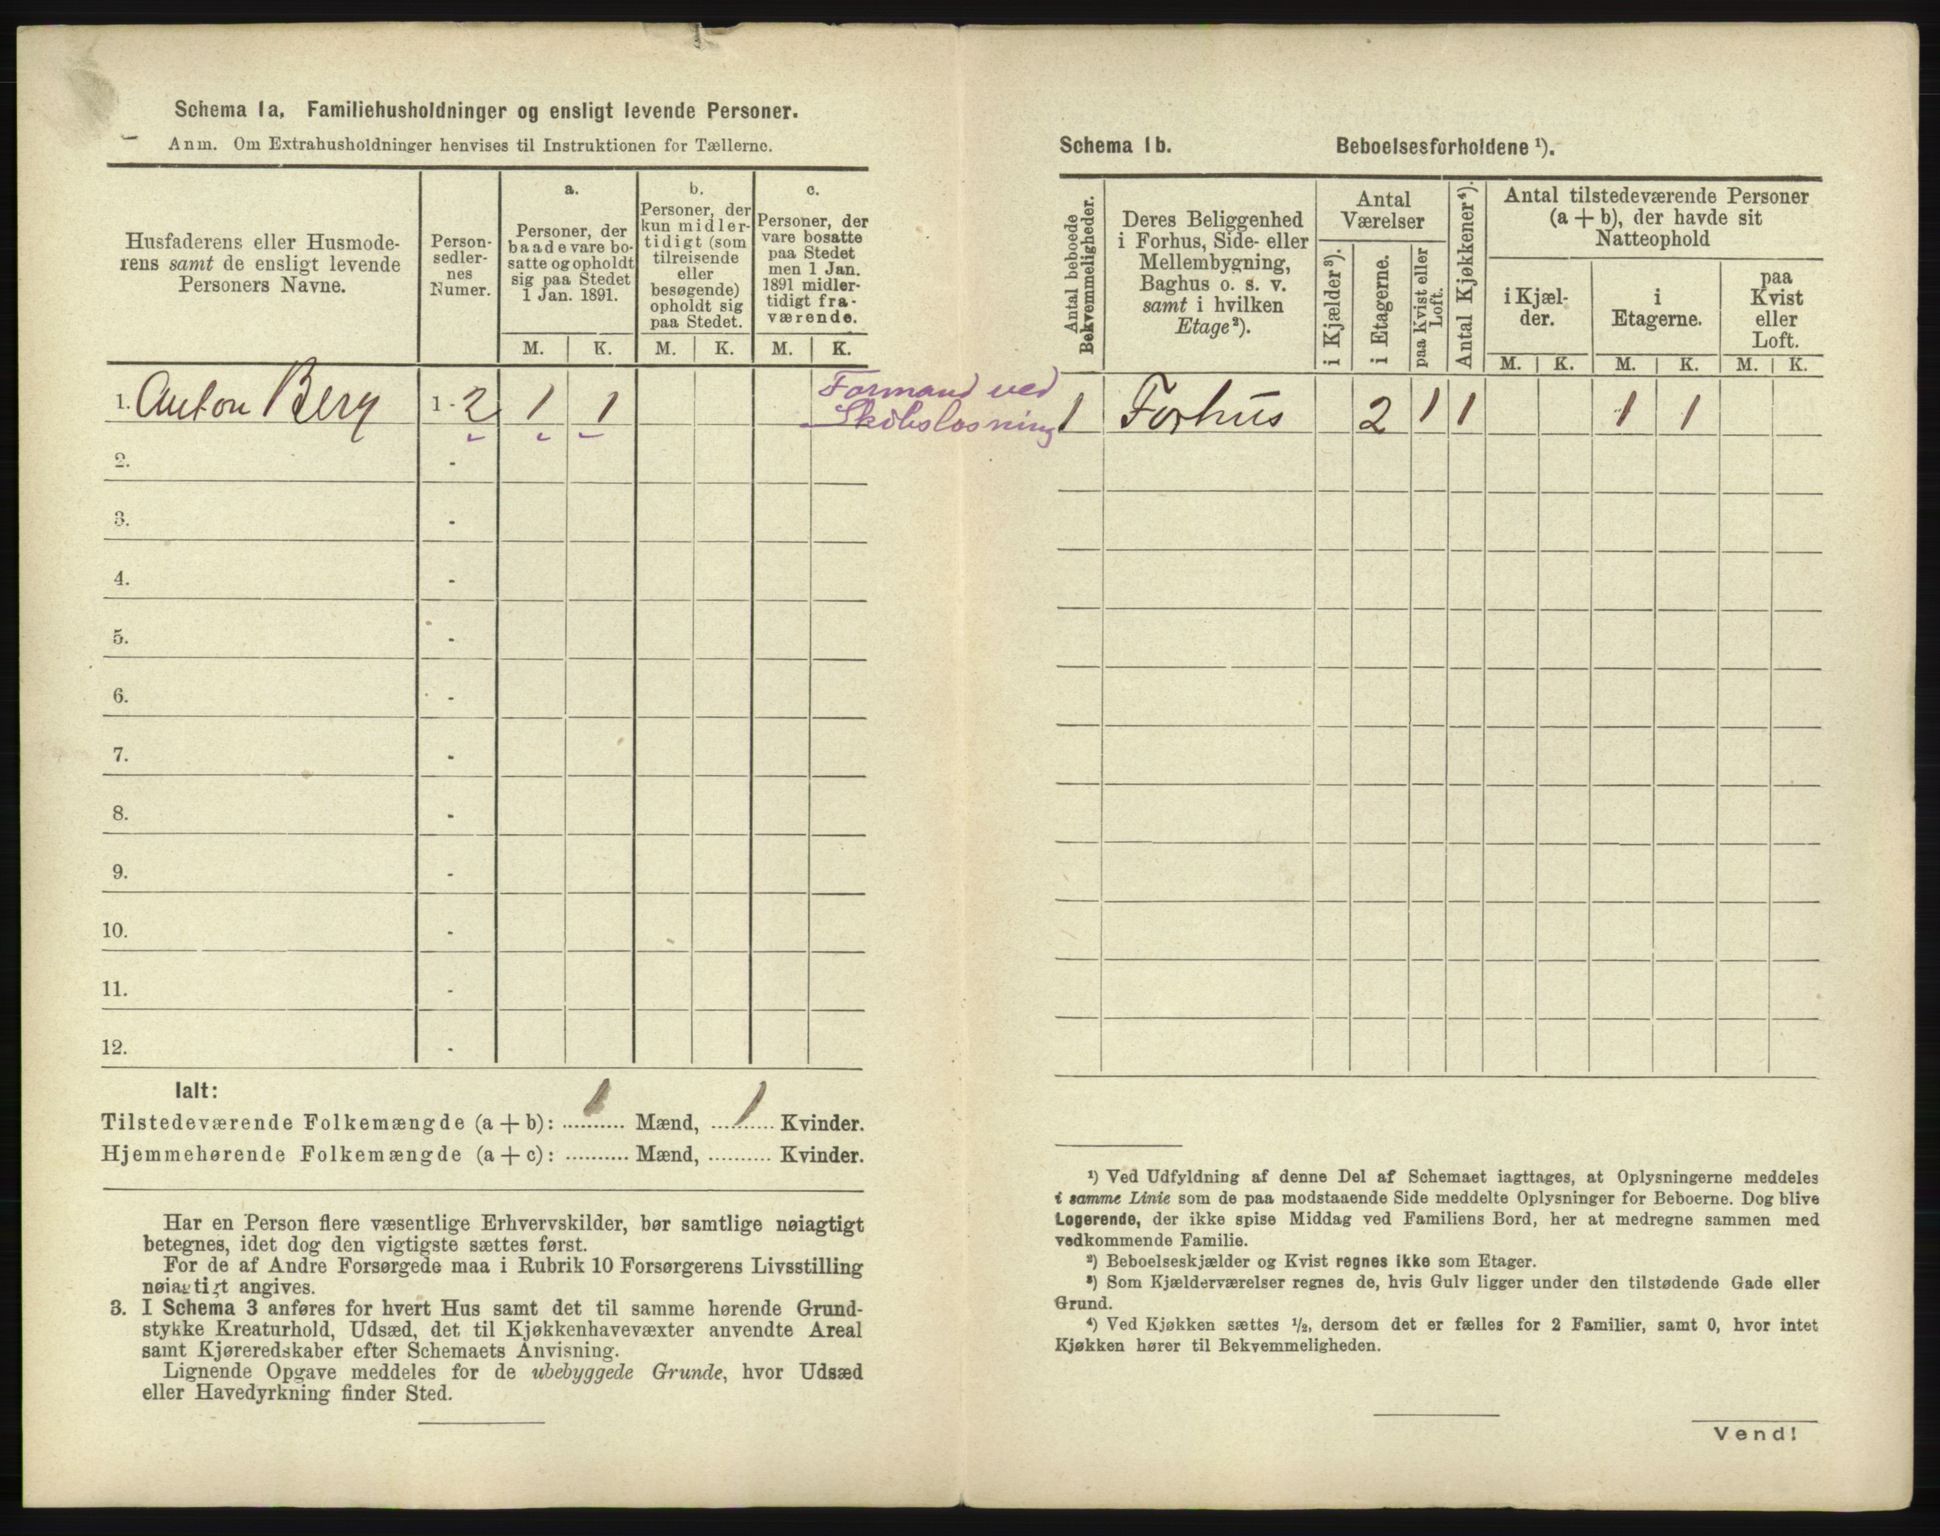 Schema 1a. Familiehusholdninger og ensligt levende Personer.
Anm. Om Extrahusholdninger henvises til Instruktionen for Tællerne.
Husfaderens eller Husmode-
rens samt de ensligt levende
Personers Navne.
Person-
sedler-
nes
Numer.
a.
Personer, der
baade vare bo-
satte og opholdt
sig paa Stedet
1 Jan. 1891.
b.
Personer, der
kun midler-
tidigt (som
tilreisende
eller
besøgende)
opholdt sig
paa Stedet.
c.
Personer, der
vare bosatte
paa Stedet
men 1 Jan.
1891 midler-
tidigt fra-
værende.
M. K. M. K. M. K.
1. Anton Berg 1 - 2 1 1
Formand ved
Skibslosning
2. -
3. -
4. -
5. -
6. -
7. -
8. -
9. -
10. -
11. -
12. -
Ialt:
Tilstedeværende Folkemængde (a + b): 1 Mænd, 1 Kvinder.
Hjemmehørende Folkemængde (a + c): .......... Mænd, .......... Kvinder.
Har en Person flere væsentlige Erhvervskilder, bør samtlige nøiagtigt
betegnes, idet dog den vigtigste sættes først.
For de af Andre Forsørgede maa i Rubrik 10 Forsørgerens Livsstilling
nøiagtigt angives.
3. I Schema 3 anføres for hvert Hus samt det til samme hørende Grund-
stykke Kreaturhold, Udsæd, det til Kjøkkenhavevæxter anvendte Areal
samt Kjøreredskaber efter Schemaets Anvisning.
Lignende Opgave meddeles for de ubebyggede Grunde, hvor Udsæd
eller Havedyrkning finder Sted.
Schema 1b. Beboelsesforholdene ¹).
Antal beboede
Bekvemmeligheder.
Deres Beliggenhed
i Forhus, Side- eller
Mellembygning,
Baghus o. s. v.
samt i hvilken
Etage²).
Antal
Værelser
i Kjælder³).
i Etagerne.
paa Kvist eller
Loft.
Antal Kjøkkener⁴).
Antal tilstedeværende Personer
(a + b), der havde sit
Natteophold
i Kjæl-
der.
i
Etagerne.
paa
Kvist
eller
Loft.
M. K. M. K. M. K.
1 Forhus 2 1 1 1 1
¹) Ved Udfyldning af denne Del af Schemaet iagttages, at Oplysningerne meddeles
i samme Linie som de paa modstaaende Side meddelte Oplysninger for Beboerne. Dog blive
Logerende, der ikke spise Middag ved Familiens Bord, her at medregne sammen med
vedkommende Familie.
²) Beboelseskjælder og Kvist regnes ikke som Etager.
³) Som Kjælderværelser regnes de, hvis Gulv ligger under den tilstødende Gade eller
Grund.
⁴) Ved Kjøkken sættes ½, dersom det er fælles for 2 Familier, samt 0, hvor intet
Kjøkken hører til Bekvemmeligheden.
Vend!